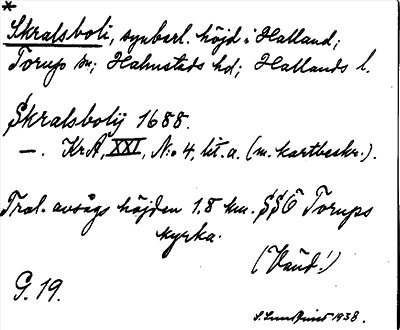 *
Skralsboli, synbarl. höjd i Halland;
Torup sn; Halmstads hd; Hallands l.
Skralsbolij 1688.
—. KrA, XXI, N:o 4, lit. a. (m. kartbeskr.).
Trol. avsågs höjden 1.8 km. SSÖ Torups
kyrka.
(Vänd!)
G. 19.
S. Lundkvist 1938.